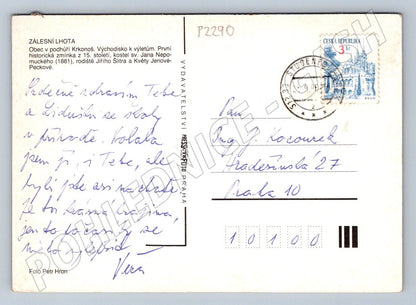 P2290
ZÁLESNÍ LHOTA
Obec v podhůří Krkonoš. Východisko k výletům. První
historická zmínka z 15. století, kostel sv. Jana Nepo-
muckého (1881), rodiště Jiřího Šitra a Květy Jeriové-
Peckové.
Srdečně zdravím Tebe
a Liduším se
v přírodě. Volala
jsem ji i Tebe, ale
byli jste asi na chatě
je tu krásná krajina,
jen to počasí by se
mělo
Věra
Foto Petr Hron
VYDAVATELSTVÍ
PRAHA
ČESKÁ REPUBLIKA
3
STUDENEC
Pan
Ing. Kocourek
Hradešínská 27
Praha 10
10100
POHLEDNICE